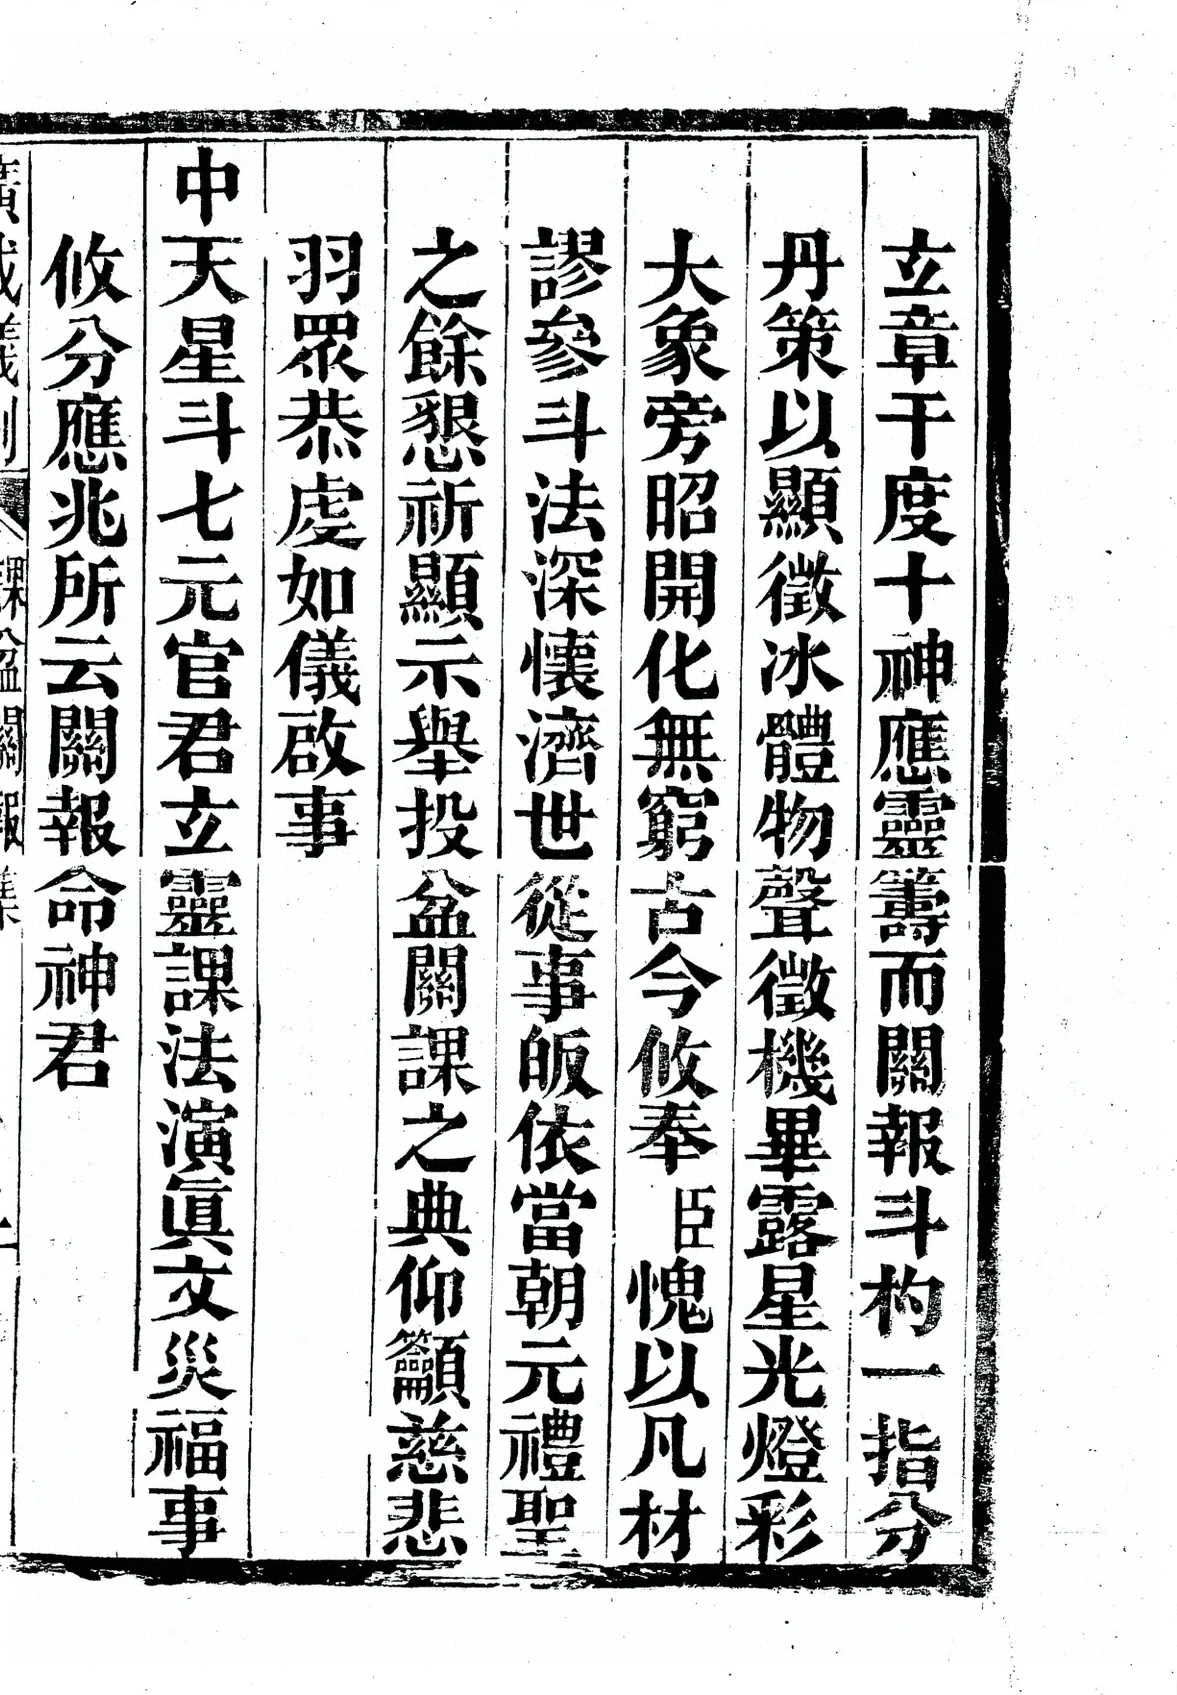 立章干度十神應靈籌而關報斗杓一指分
丹策以顯徵冰體物聲徵機畢露星光燈彩
大象旁昭開化無窮古今攸奉臣愧以凡材
謬參斗法深懷濟世從事皈依當朝元禮聖
之餘懇祈顯示舉投盆關課之典仰籲慈悲
羽眾恭虔如儀啟事
中天星斗七元官君立靈課法演眞文災福事
攸分應兆所云關報命神君
廣成儀制 課盆關報集